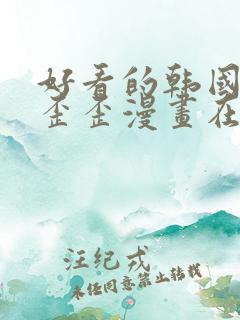 好看的韩国
歪歪漫畫在
汪纪戎
未经同意禁止转载